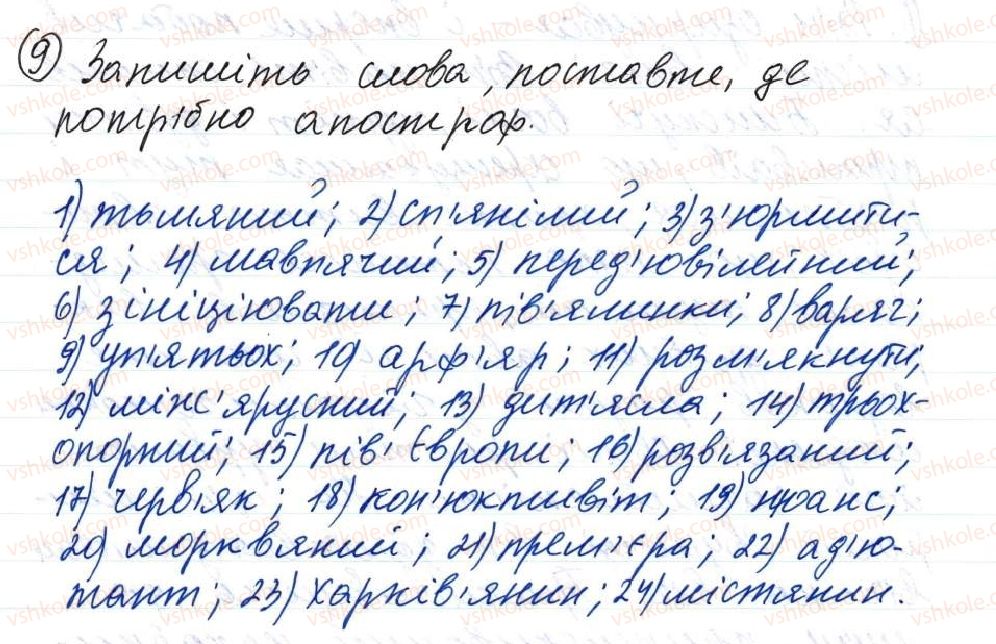 9) Запишіть слова, поставте, де
потрібно апостраф.
1) тьмяний; 2) сп'янілий; 3) з'юрмити-
ся; 4) мавпячий; 5) перед'ювілейний;
6) зініціювати; 7) пів'яминки; 8) варяг;
9) уп'ятьох; 10) арф'яр; 11) розм'якнути;
12) між'ярусний; 13) дит'ясла; 14) трьох-
опорний; 15) пів'Європи; 16) розв'язаний;
17) черв'як; 18) кон'юктивіт; 19) нюанс;
20) морквяний; 21) прем'єра; 22) ад'ю-
тант; 23) Харків'янин; 24) містянин.